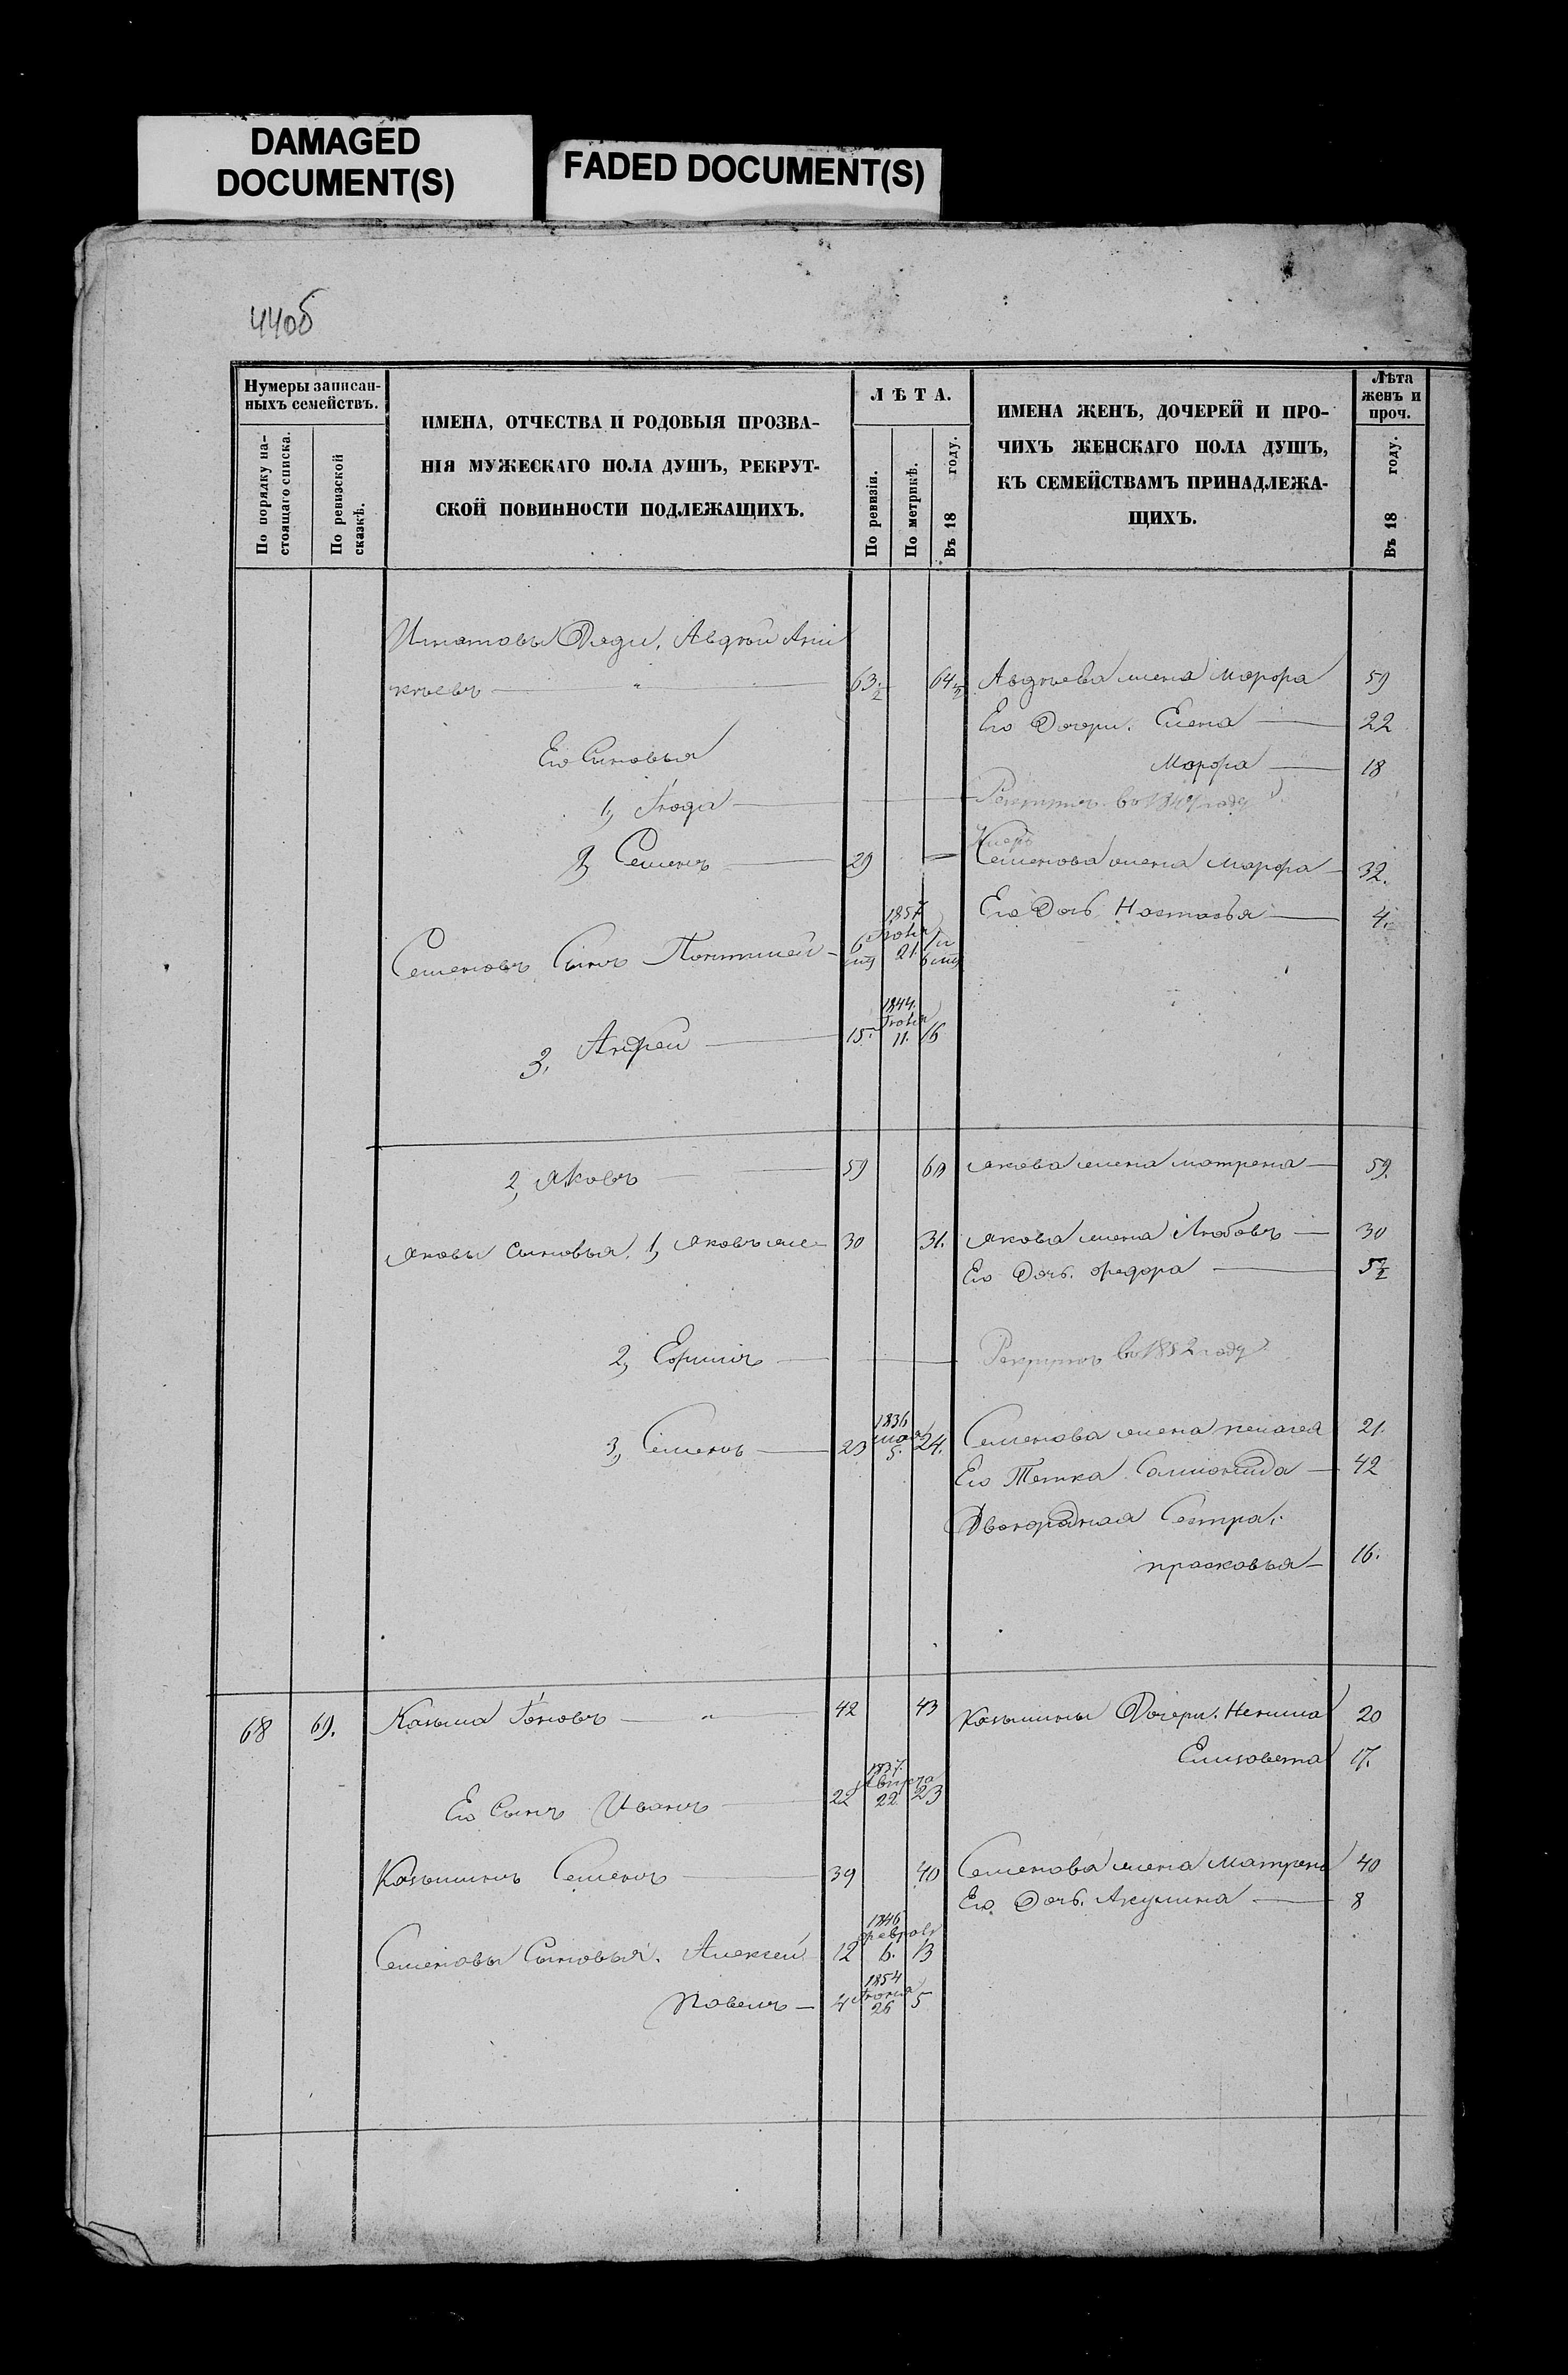 DAMAGED
DOCUMENT(S)
FADED DOCUMENT(S)
44об
Нумеры записан-
ныхъ семействъ.
По порядку на-
стоящаго списка.
По ревизской
сказкѣ.
ИМЕНА, ОТЧЕСТВА И РОДОВЫЯ ПРОЗВА-
НІЯ МУЖЕСКАГО ПОЛА ДУШЪ, РЕКРУТ-
СКОЙ ПОВИННОСТИ ПОДЛЕЖАЩИХЪ.
ЛѢТА.
По ревизіи.
По метрикѣ.
Въ 18 году.
ИМЕНА ЖЕНЪ, ДОЧЕРЕЙ И ПРО-
ЧИХЪ ЖЕНСКАГО ПОЛА ДУШЪ,
КЪ СЕМЕЙСТВАМЪ ПРИНАДЛЕЖА-
ЩИХЪ.
Лѣта
женъ и
проч.
Въ 18 году.
Игнатовы Дяди. Авдѣй Ани
кѣевъ 63½ 64½ Авдѣева жена Марфа 59
Его Дочери. Елена 22
Его Сыновья Марфа 18
1, Іюда Рекрутъ въ году
2, Семенъ 29 Семенова жена Марфа 32.
Его Дочь Настасья 4.
Семеновъ Сынъ 6 1857 21
3, Андрей 15. 1844. 11. 16
2, Яковъ 59 60 Якова жена Матрена 59.
Яковы сыновья. 1, Яковъ же 30 31. Якова жена Любовъ 30
Его Дочь. Федора 5½
2, Ефимъ Рекрутъ въ 1852 году
3, Семенъ 23 1836 мая 5. 24. Семенова жена Пелагея 21.
Его Тетка Саламонида 42
Двоюродная Сестра.
Прасковья 16.
68 69. Казьма Іоновъ 42 43 Казьмины Дочери. Ненила 20
Елизавета 17.
Его Сынъ Иванъ 22 1837. Августа 22 23
Казьминъ Семенъ 39 40 Семенова жена Матрена 40
Его Дочь. Акулина 8
Семеновы Сыновья. Алексей 12 1846 февраля 6. 13
Павелъ 4 1854 26 5